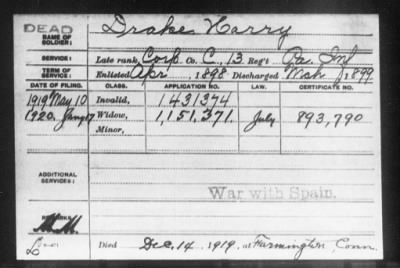 DEAD
NAME OF SOLDIER: Drake Harry
SERVICE: Late rank, Corp. Co. C, 13 Reg't Pa. Inf
TERM OF SERVICE: Enlisted Apr 1898 Discharged Mch 1899
DATE OF FILING. CLASS. APPLICATION NO. LAW. CERTIFICATE NO.
1919 May 10 Invalid, 1431374
1920. Jany 17 Widow, 1,151,371 July 893,790
Minor,
ADDITIONAL SERVICES:
War with Spain.
Died Dec. 14, 1919, at Farmington, Conn.